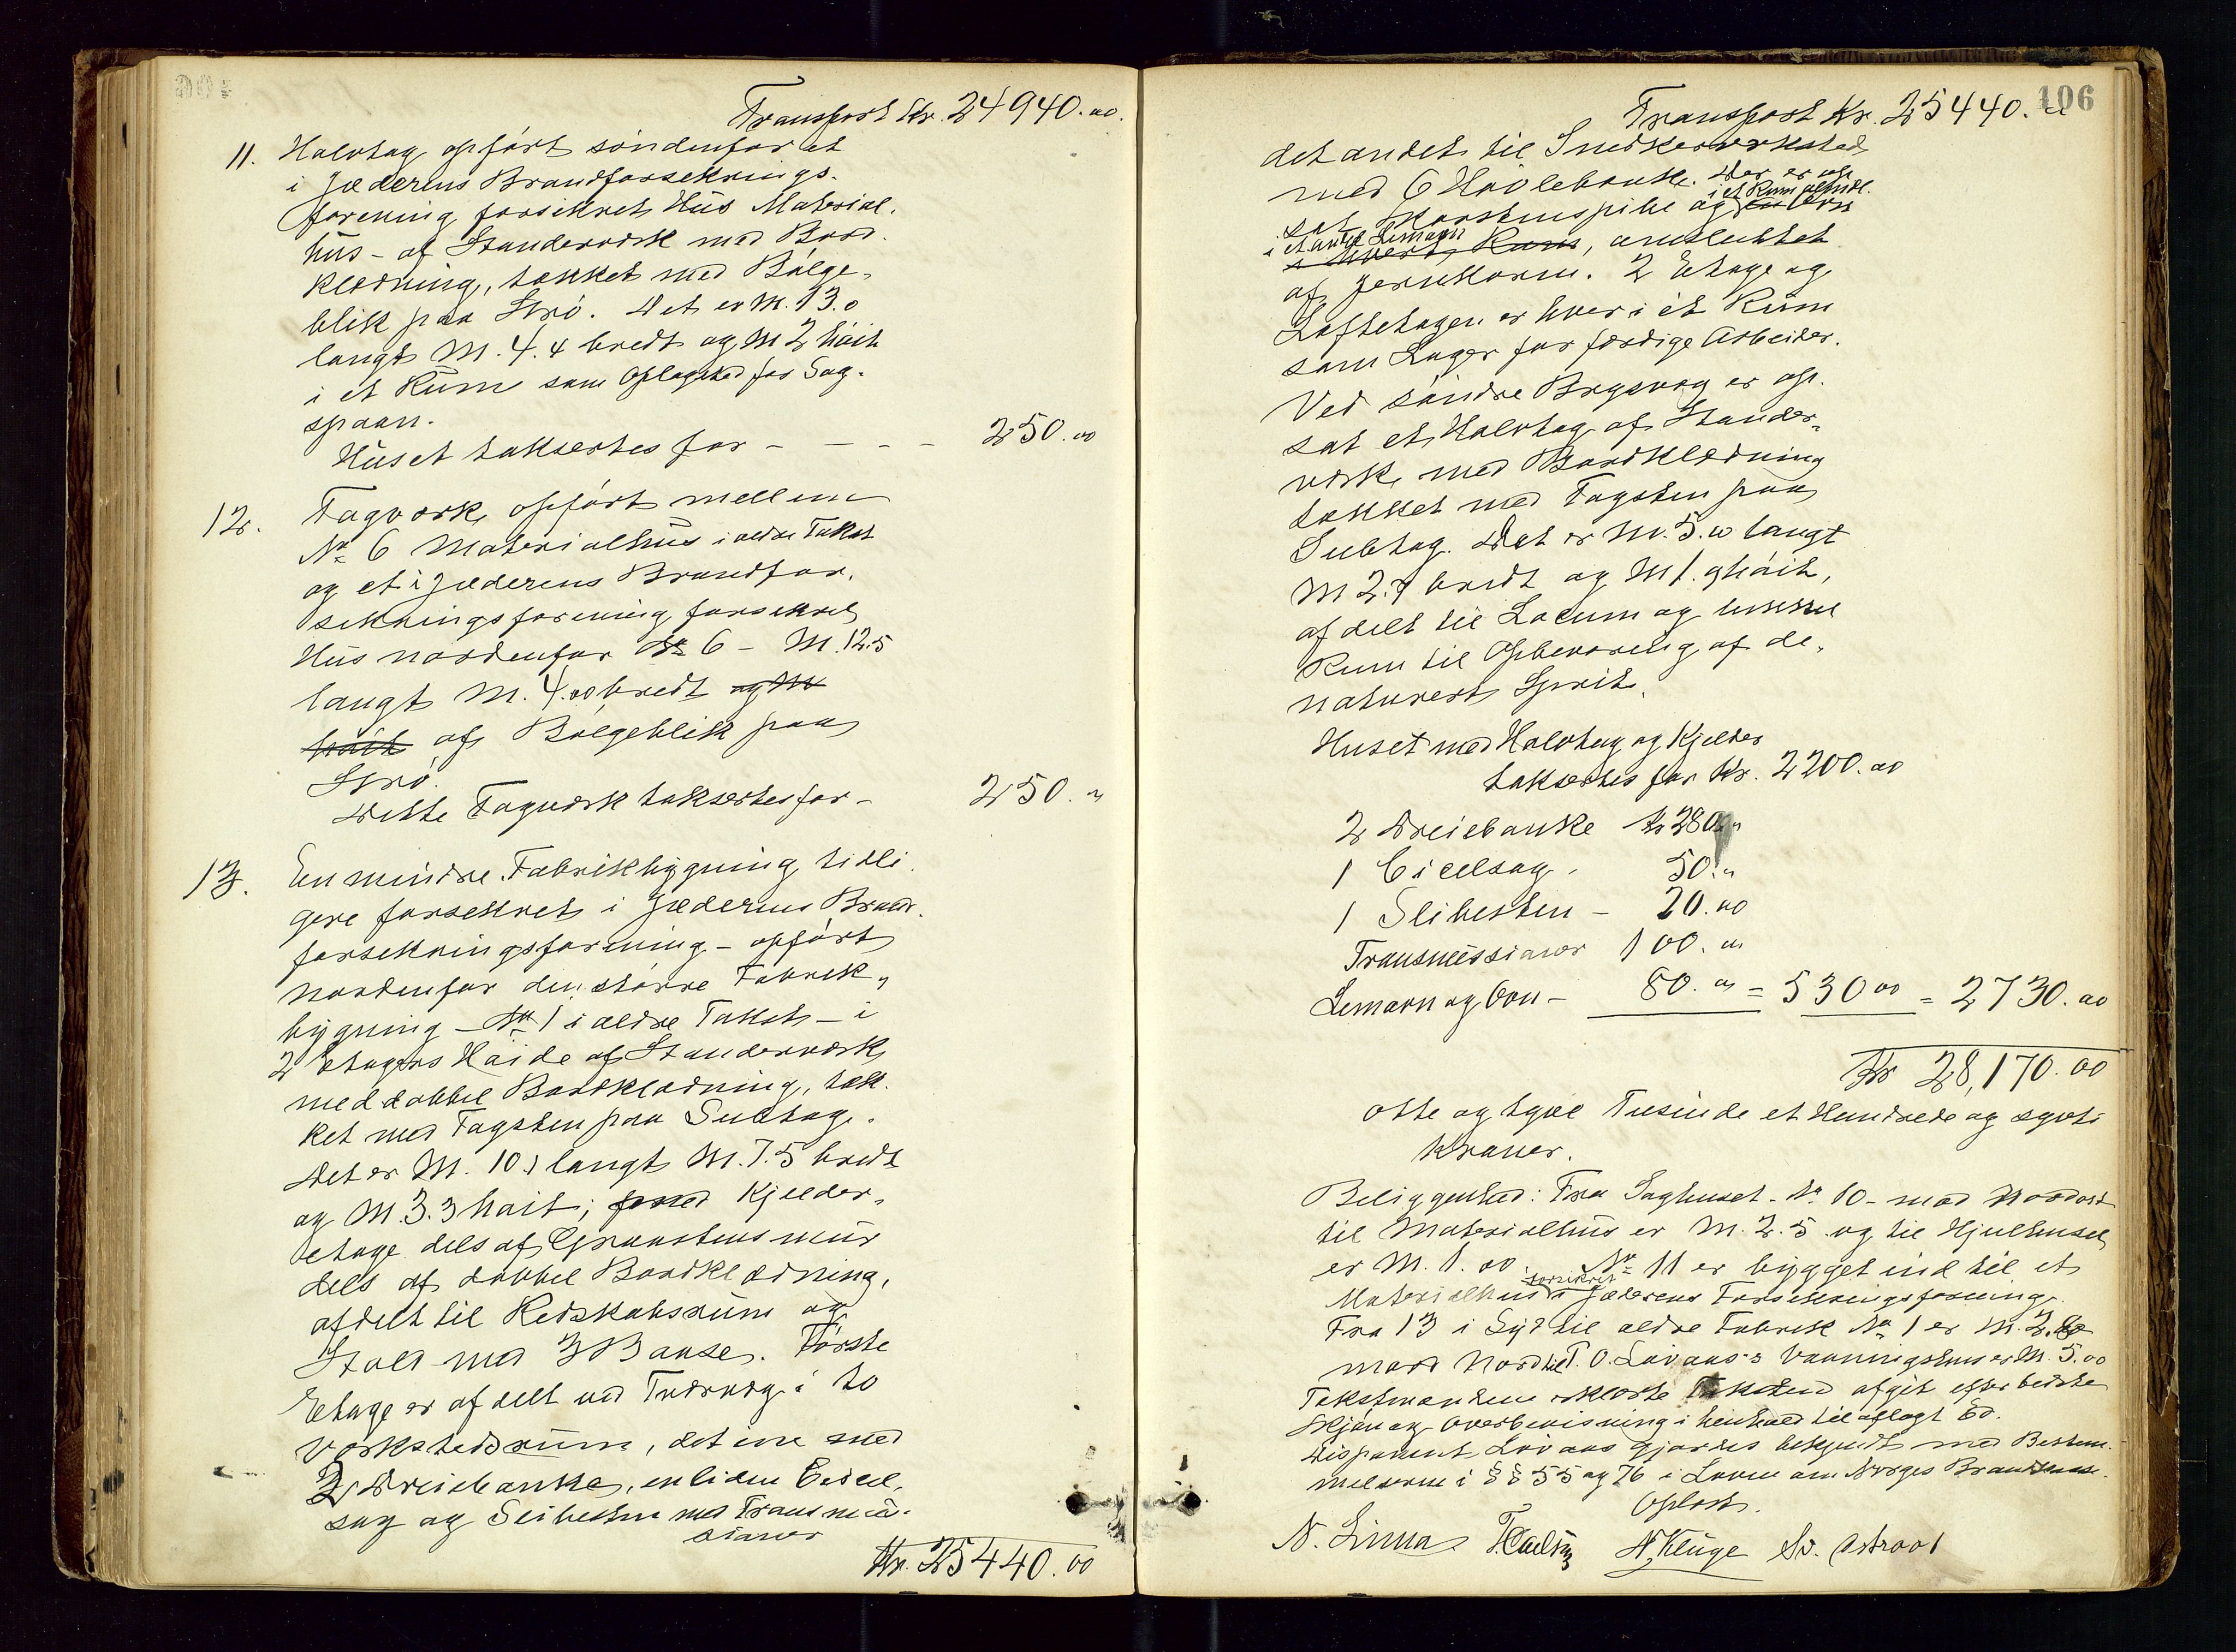 Transport Kr. 24940.00.
11. Halvtag opført søndenfor et
i Jæderens Brandforsekrings-
forening forsikret Hus Material-
hus - af Standerværk med Bord-
klædning, tækket med Bølge-
blik paa Strø. Det er M. 13.0
langt M. 4.4 bredt og M 2 høit
i et Rum som Oplagsted for Sag-
spaan.
Huset takseres for - - - - 250.00
12. Tagværk opført mellem
No 6 Materialhus i ældre Takst
og et i Jæderens Brandfor-
sekringsforening forsekret
Hus nordenfor No 6 - M. 12.5
langt M. 4.00 bredt og M
høit af Bølgeblik paa
Strø.
Dette Tagværk takseres for - 250.00
13. En mindre Fabrikbygning tidli-
gere forsekret i Jæderens Brand-
forsekringsforening - opført
nordenfor den større Fabrik-
bygning - No 1 i ældre Takst - i
2 Etagers Høide af Standerværk
med dobbel Bordklædning, tæk-
ket med Tagsten paa Subtag.
Det er M. 10.1 langt M. 7.5 bredt
og M. 3.3 høit; med Kjelder-
etage dels af Graastensmur
dels af dobbel Bordklædning,
afdelt til Redskabsrum og
Stald med 3 Baase. Første
Etage er afdelt ved Tværvæg i to
Værkstedsrum, det ene med
2 Dreiebanke, en liden Circel-
sag og Slibesten med Transmis-
sioner
Kr. 25440.00
106
Transport Kr. 25440.00
det andet til Snedkerværksted
med 6 Høvlebænke. Der er op-
i et Rum almindl.
sat Skorstenspibe og en Ovn
i et andet Limovn
i hvert Rum, omsluttet
af Jernskorm. 2 Etage og
Loftetagen er hver i et Rum
som Lager for færdige Arbeider.
Ved søndre Brygvæg er op-
sat et Halvtag af Stander-
værk med Bordklædning
tækket med Tagsten paa
Subtag. Det er M. 5.00 langt
M 2.7 bredt og M 1.9 høit,
afdelt til Locum og
Rum til Opbevaring af de-
natureret Sprit.
Huset med Halvtag og Kjelder
takseres for Kr. 2200.00
2 Dreiebanke Kr 280.00
1 Circelsag - 50.00
1 Slibesten - 20.00
Transmissioner 100.00
Limovn og Ovn - 80.00 = 530.00 = 2730.00
Kr 28,170.00
otte og tyve Tusinde et Hundrede og sytti
Kroner.
Beliggenhed: Fra Saghuset - No 10 - mod Nordost
til Materialhus er M. 2.5 og til Hjulhuset
er M. 1.00. No 11 er bygget ind til et
forsikret
Materialhus i Jæderens Forsekringsforening.
Fra 13 i Syd til ældre Fabrik No 1 er M. 2.80
mod Nord til T. O. Løvaas's Vaaningshus er M. 5.00
Takstmændene erklærte Taksten afgit efter bedste
Skjøn og Overbevisning i henhold til aflagt Ed.
Disponent Løvaas gjordes bekjendt med Bestem-
melserne i §§ 55 og 76 i Loven om Norges Brandkasse.
Oplæst.
N. Sinnes N. Kluge Sv. Østraat